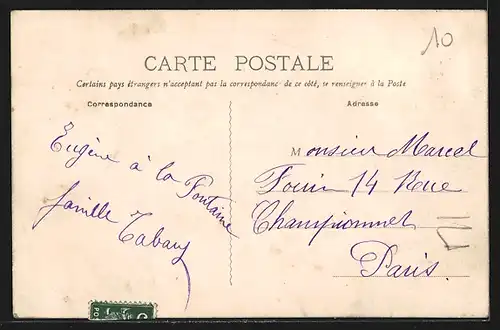 10
CARTE POSTALE
Certains pays étrangers n'acceptant pas la correspondance de ce côté, se renseigner à la Poste
Correspondance
Adresse
Eugène à la Fontaine
famille Tabary
Monsieur Marcel
14 Rue
Championnet
Paris.